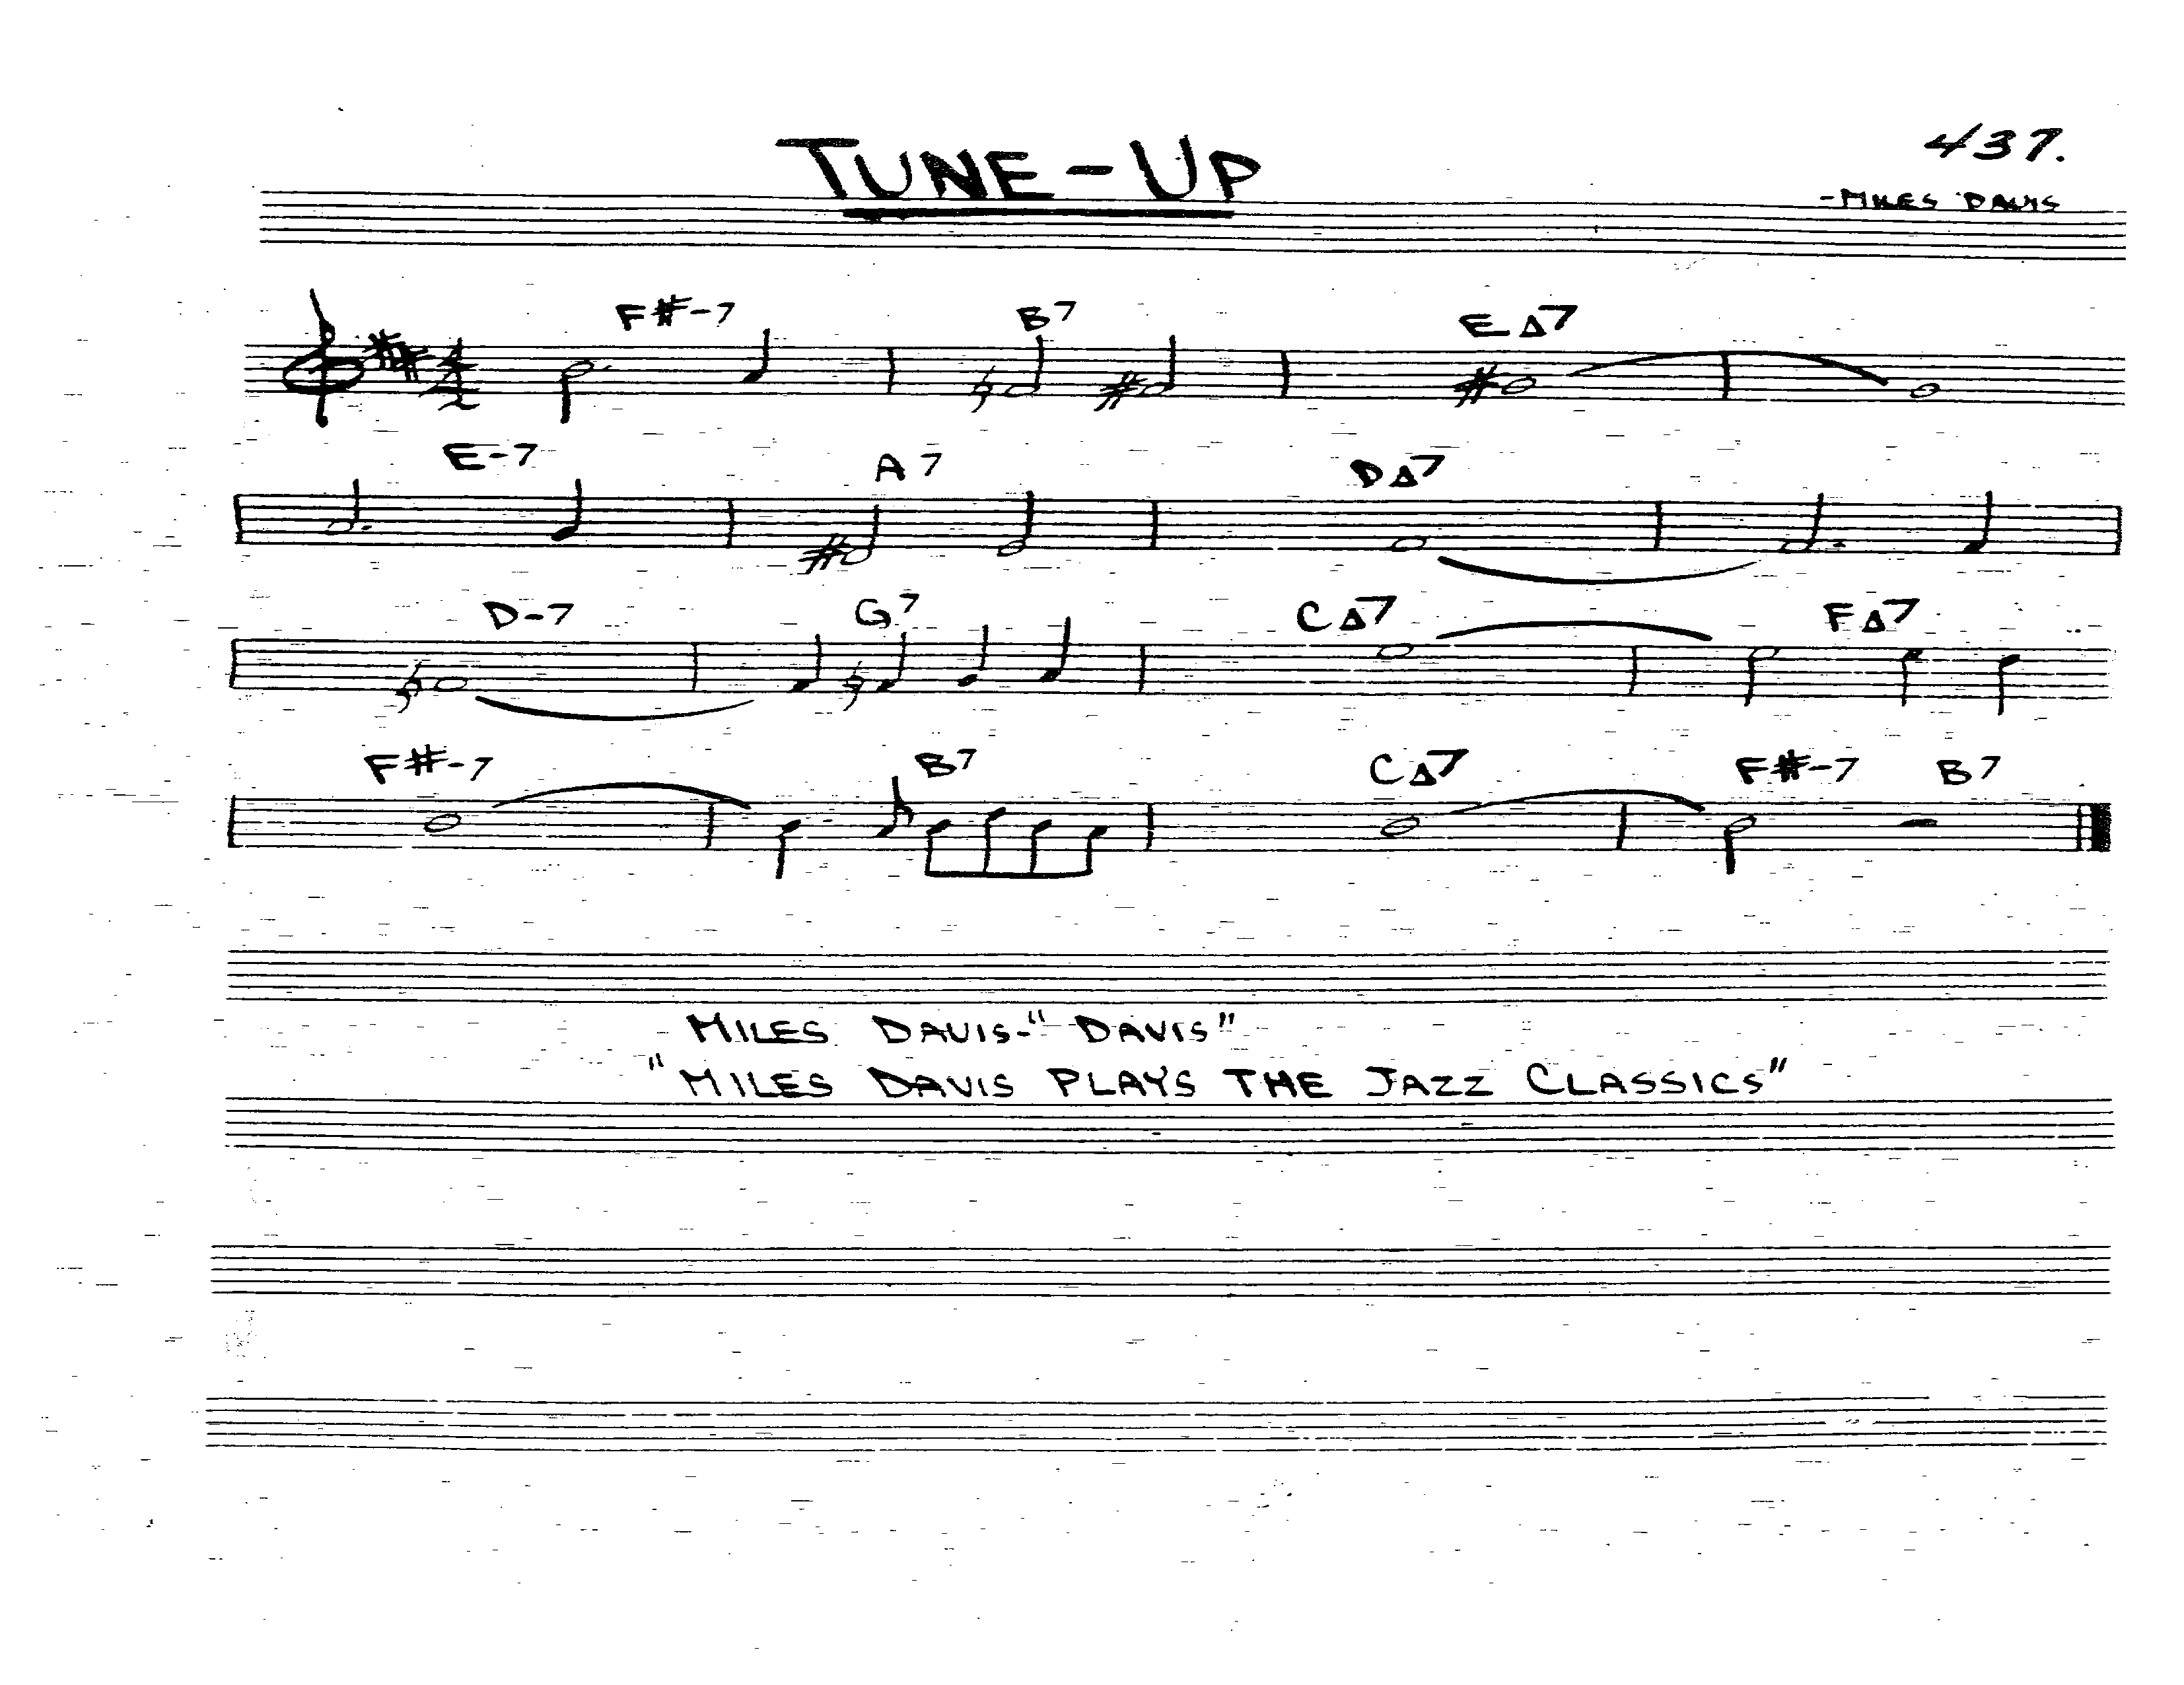 TUNE-UP
437.
-MILES DAVIS
F#-7 B7 E△7
E-7 A7 D△7
D-7 G7 C△7 F△7
F#-7 B7 C△7 F#-7 B7
MILES DAVIS-"DAVIS"
"MILES DAVIS PLAYS THE JAZZ CLASSICS"